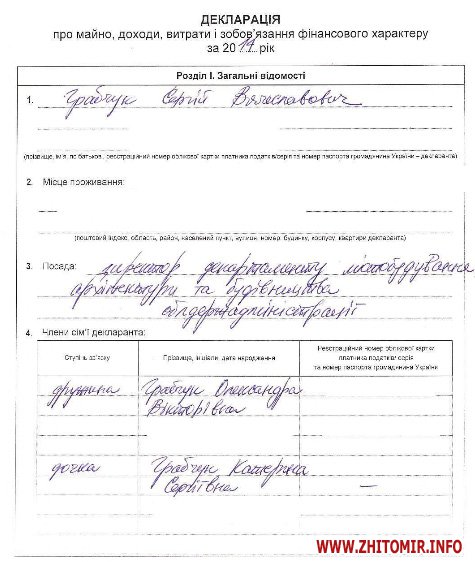 ДЕКЛАРАЦІЯ
про майно, доходи, витрати і зобов'язання фінансового характеру
за 2014 рік
Розділ І. Загальні відомості
1. Грабчук Сергій Вячеславович
(прізвище, ім'я, по батькові, реєстраційний номер облікової картки платника податків/серія та номер паспорта громадянина України – декларанта)
2. Місце проживання:
(поштовий індекс, область, район, населений пункт, вулиця, номер: будинку, корпусу, квартири декларанта)
3. Посада: директор департаменту містобудування
архітектури та будівництва
облдержадміністрації
4. Члени сім'ї декларанта:
Ступінь зв'язку
Прізвище, ініціали, дата народження
Реєстраційний номер облікової картки
платника податків/ серія
та номер паспорта громадянина України
дружина
Грабчук Олександра
Вікторівна
дочка
Грабчук Катерина
Сергіївна
WWW.ZHITOMIR.INFO